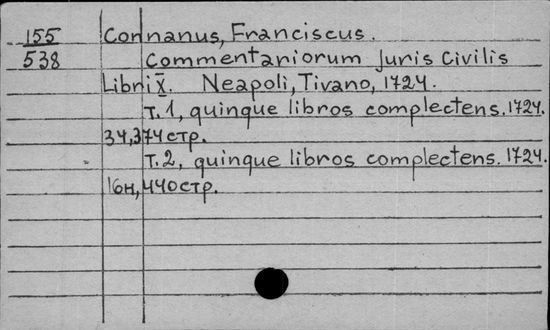 155 Connanus, Franciscus.
538 Commentariorum Juris Civilis
Libri X. Neapoli, Tivano, 1724.
T. 1, quinque libros complectens. 1724.
34, 374 стр.
T. 2, quinque libros complectens. 1724.
16н, 440 стр.